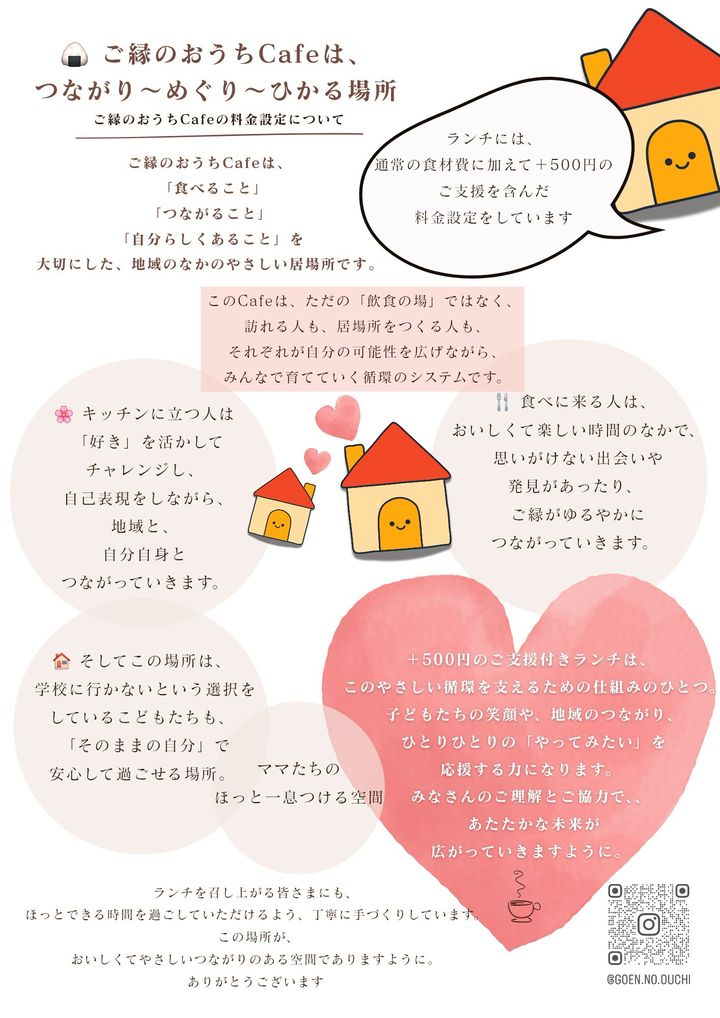 🍙 ご縁のおうちCafeは、
つながり〜めぐり〜ひかる場所
ご縁のおうちCafeの料金設定について
ご縁のおうちCafeは、
「食べること」
「つながること」
「自分らしくあること」を
大切にした、地域のなかのやさしい居場所です。
ランチには、
通常の食材費に加えて＋500円の
ご支援を含んだ
料金設定をしています
このCafeは、ただの「飲食の場」ではなく、
訪れる人も、居場所をつくる人も、
それぞれが自分の可能性を広げながら、
みんなで育てていく循環のシステムです。
🌸 キッチンに立つ人は
「好き」を活かして
チャレンジし、
自己表現をしながら、
地域と、
自分自身と
つながっていきます。
🍴 食べに来る人は、
おいしくて楽しい時間のなかで、
思いがけない出会いや
発見があったり、
ご縁がゆるやかに
つながっていきます。
🏠 そしてこの場所は、
学校に行かないという選択を
しているこどもたちも、
「そのままの自分」で
安心して過ごせる場所。
ママたちの
ほっと一息つける空間
＋500円のご支援付きランチは、
このやさしい循環を支えるための仕組みのひとつ。
子どもたちの笑顔や、地域のつながり、
ひとりひとりの「やってみたい」を
応援する力になります。
みなさんのご理解とご協力で、、
あたたかな未来が
広がっていきますように。
ランチを召し上がる皆さまにも、
ほっとできる時間を過ごしていただけるよう、丁寧に手づくりしています。
この場所が、
おいしくてやさしいつながりのある空間でありますように。
ありがとうございます
@GOEN.NO.OUCHI